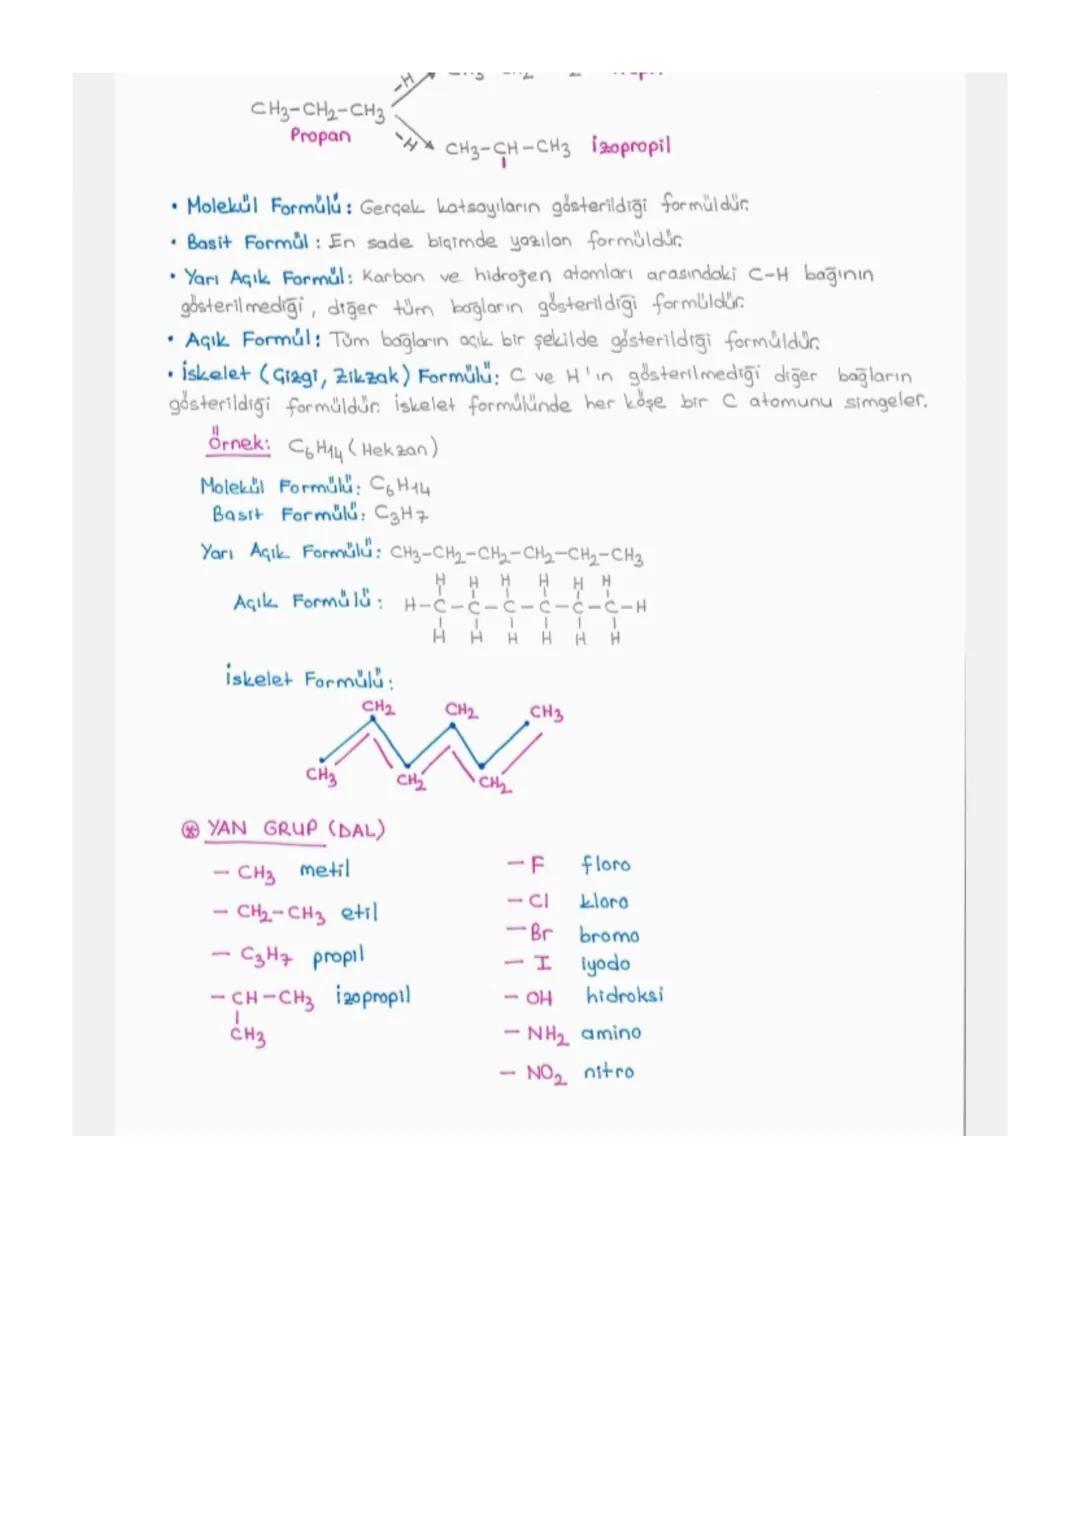 -H
CH3-CH2-CH3
Propan
-H
CH3-CH-CH3 izopropil
• Molekül Formülü: Gerçek katsayıların gösterildiği formüldür.
• Basit Formül: En sade biçimde yazılan formüldür.
• Yarı Açık Formül: Karbon ve hidrojen atomları arasındaki C-H bağının
gösterilmediği, diğer tüm bağların gösterildiği formüldür.
• Açık Formül: Tüm bağların açık bir şekilde gösterildiği formüldür.
• İskelet (Çizgi, Zikzak) Formülü: C ve H'ın gösterilmediği diğer bağların
gösterildiği formüldür. İskelet formülünde her köşe bir C atomunu simgeler.
Örnek: C6H14 (Hekzan)
Molekül Formülü: C6H14
Basit Formülü: C3H7
Yarı Açık Formülü: CH3-CH2-CH2-CH2-CH2-CH3
H H H H H H
Açık Formülü: H-C-C-C-C-C-C-H
H H H H H H
İskelet Formülü:
CH2 CH2 CH3
CH3 CH2 CH2
⊛ YAN GRUP (DAL)
- CH3 metil
- CH2-CH3 etil
- C3H7 propil
- CH-CH3 izopropil
CH3
- F floro
- Cl kloro
- Br bromo
- I iyodo
- OH hidroksi
- NH2 amino
- NO2 nitro